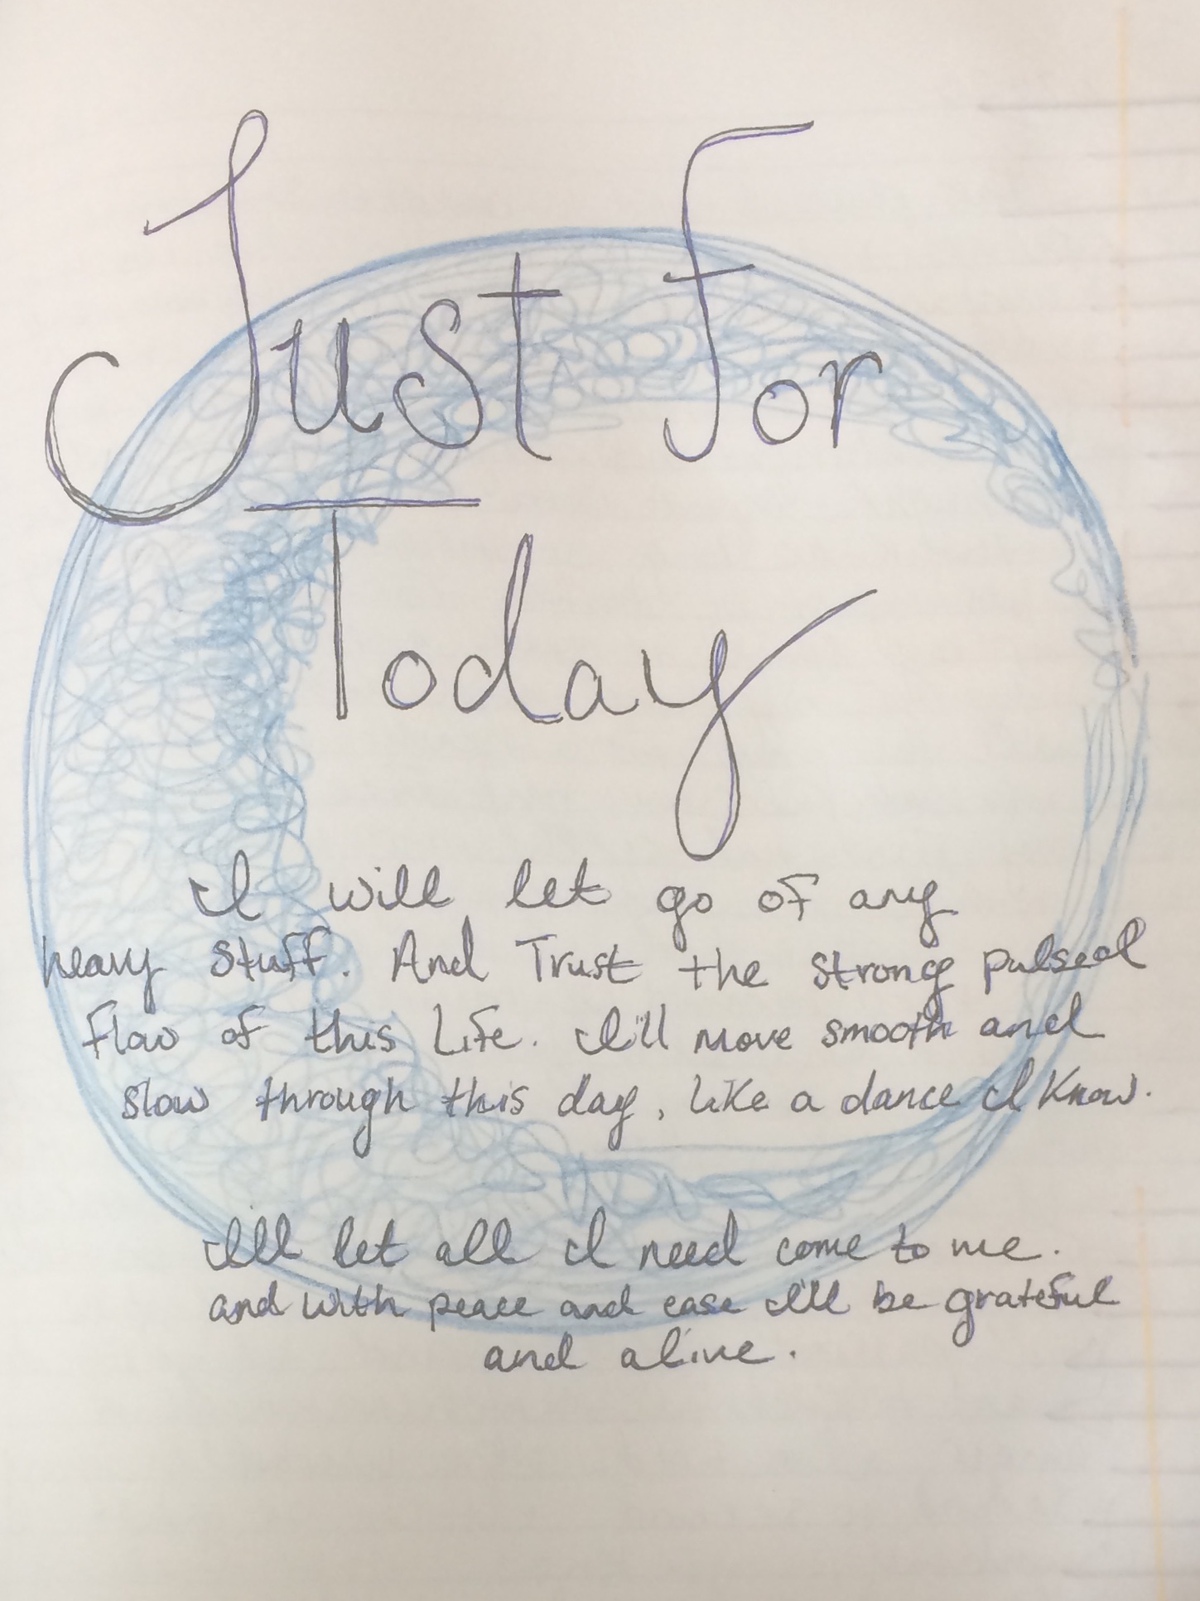 Just For
Today
I will let go of any
heavy stuff. And Trust the strong pulsed
flow of this Life. I'll move smooth and
slow through this day, like a dance I know.
I'll let all I need come to me.
and with peace and ease I'll be grateful
and alive.